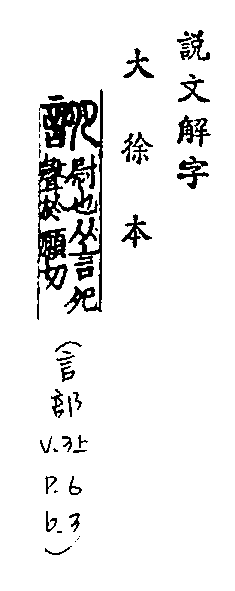 説文解字
大徐本
尉也从言夗
聲於願切
(言部
V.3上
P.6
b.3)